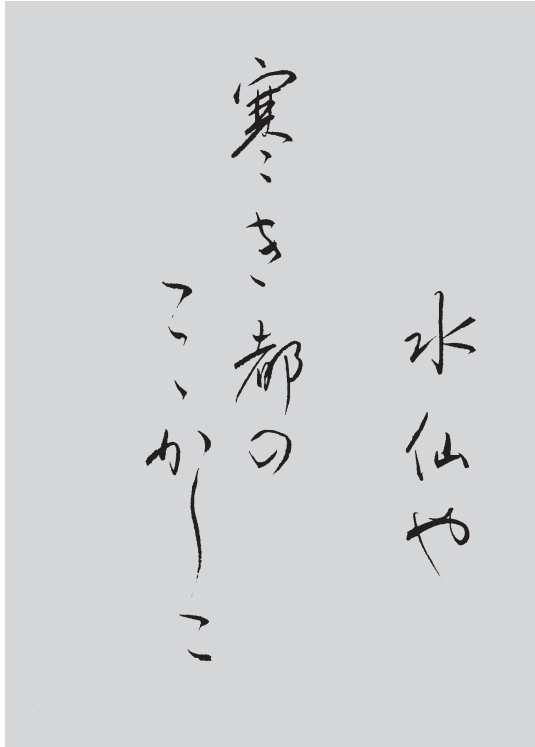 水仙や
寒き都の
こゝかしこ